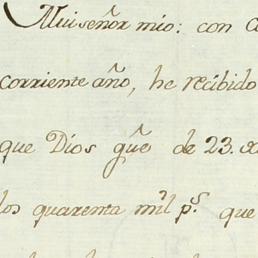 Mui señor mio: con
corriente año, he recibido
que Dios gũe de 23.
los quarenta mil p.s que